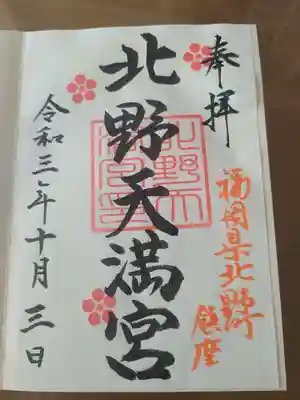 奉拝
福岡県北野町
鎮座
北野天満宮
令和三年十月三日